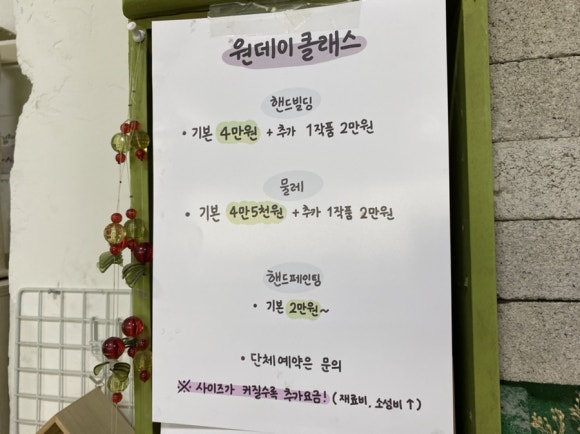 원데이 클래스
핸드빌딩
• 기본 4만원 + 추가 1작품 2만원
물레
• 기본 4만 5천원 + 추가 1작품 2만원
핸드페인팅
• 기본 2만원~
• 단체예약은 문의
※ 사이즈가 커질수록 추가요금! (재료비, 소성비 ↑)